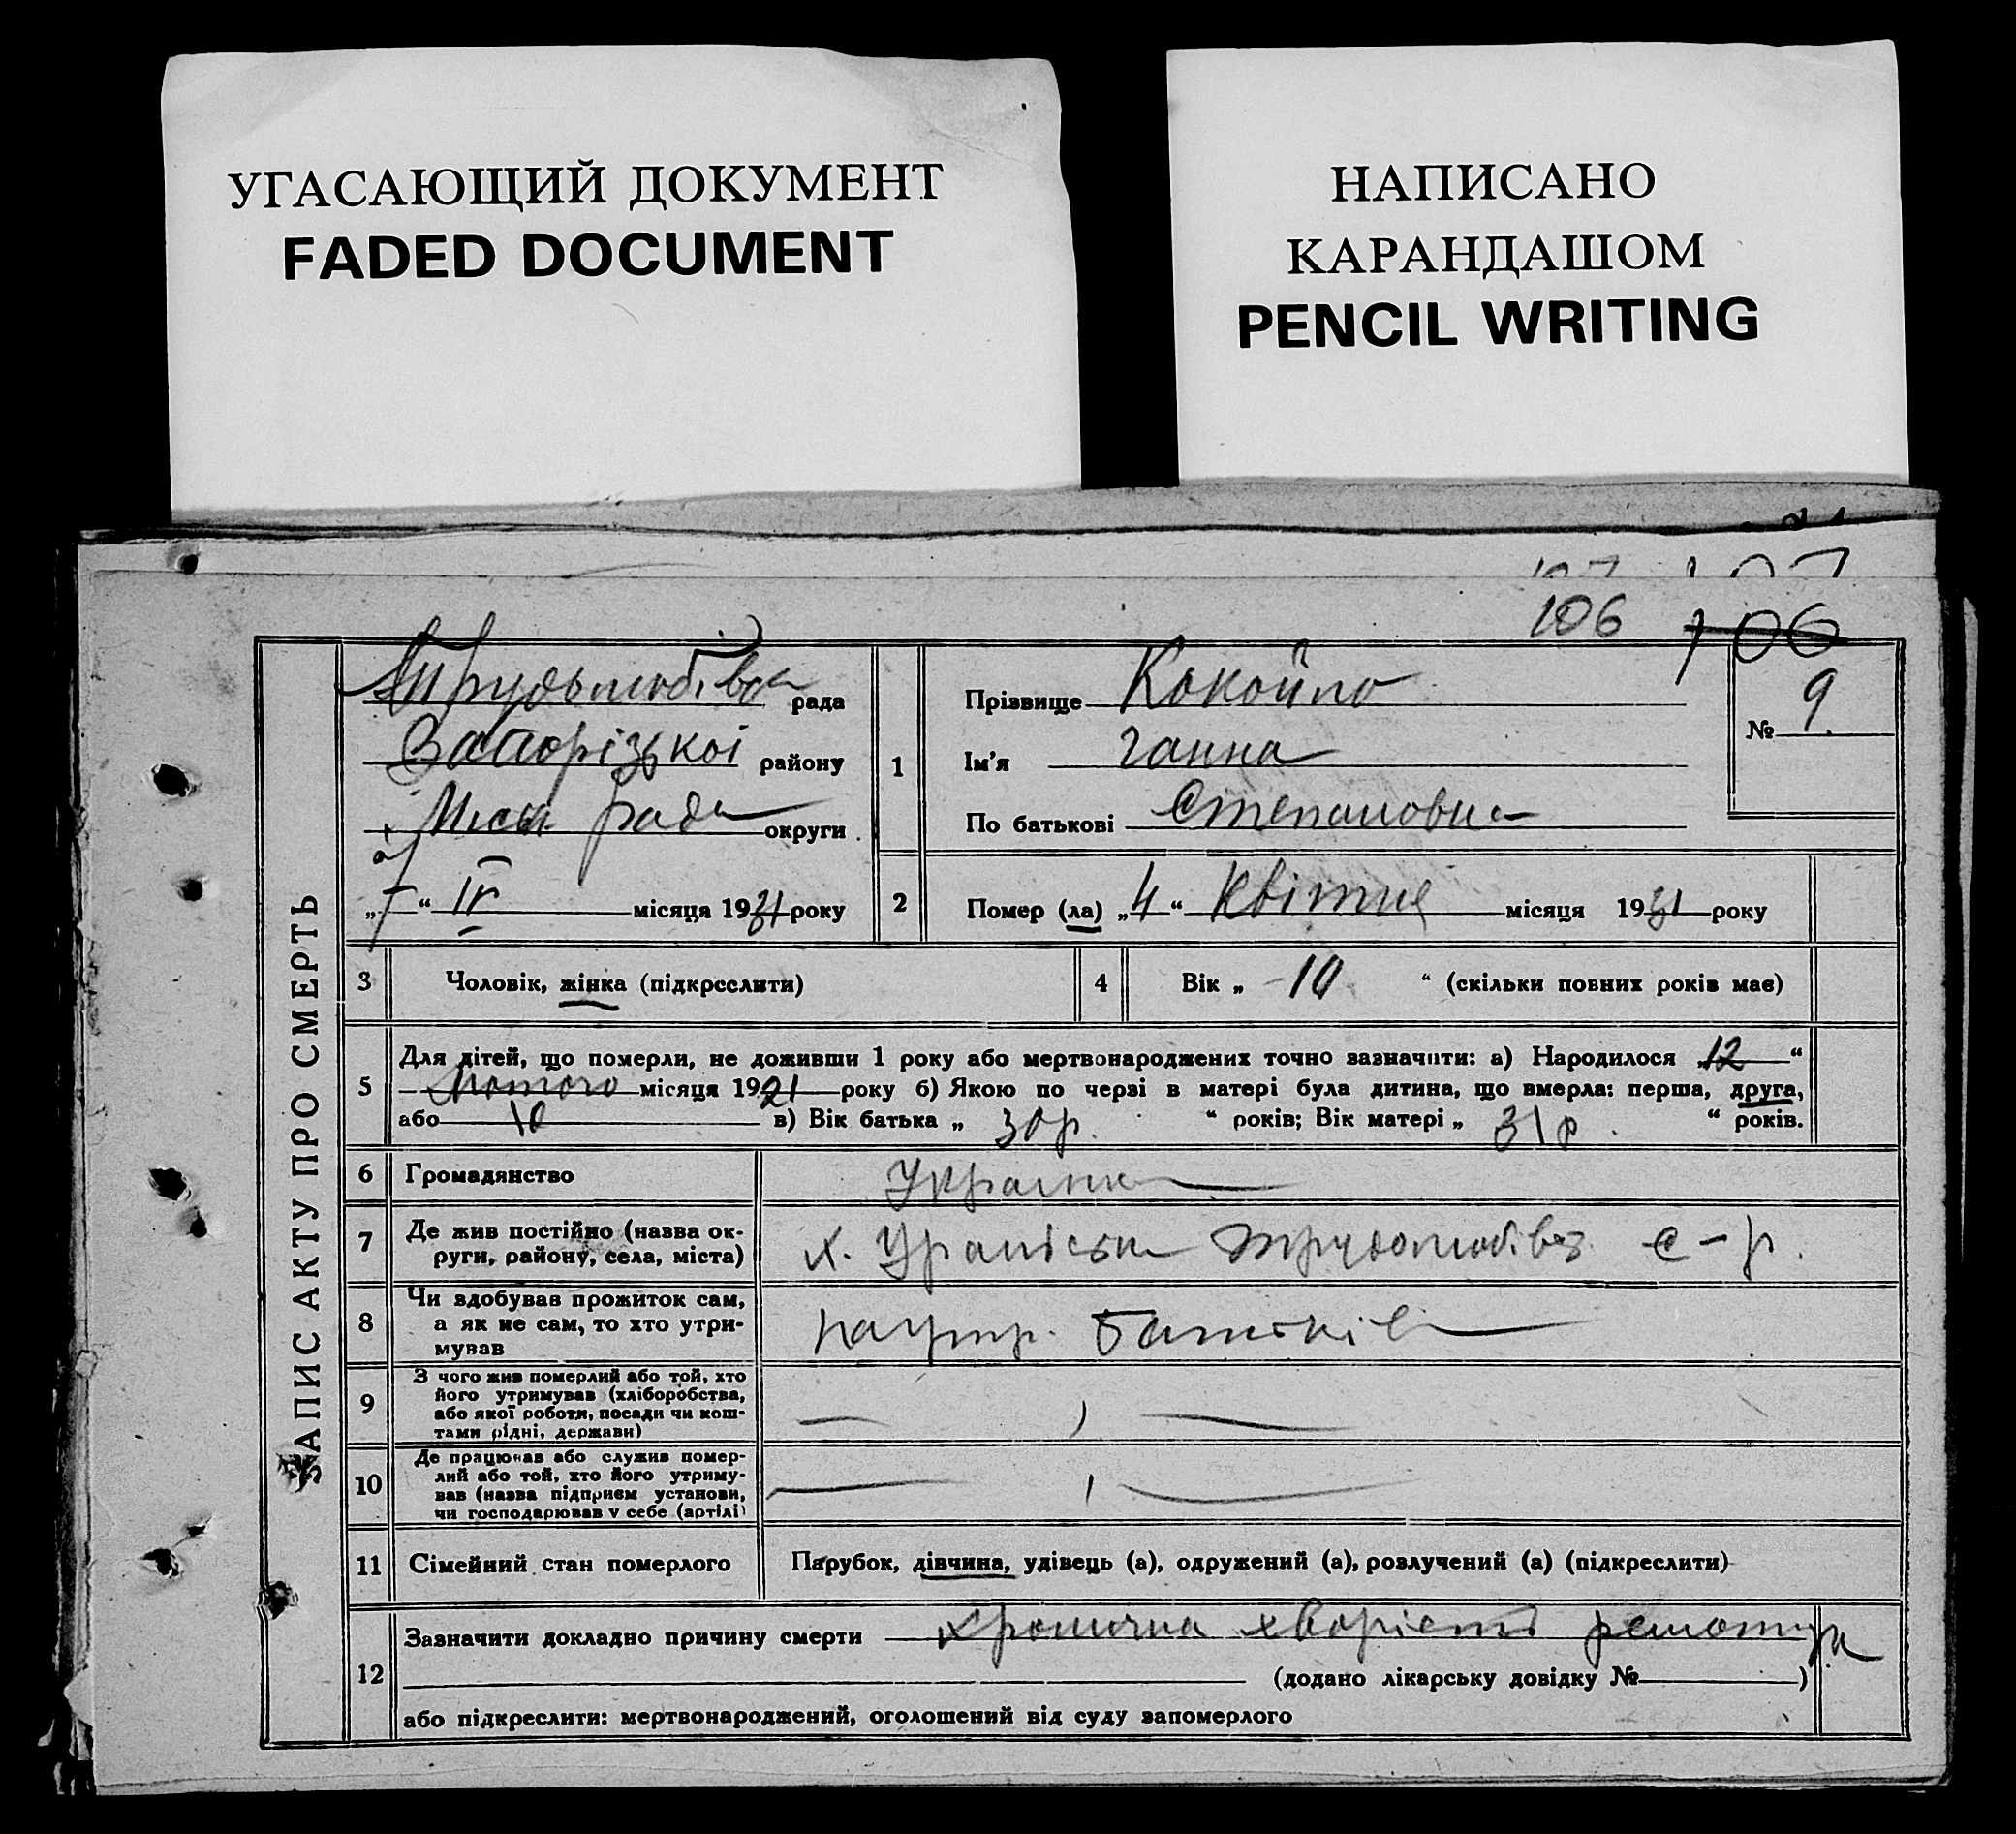 УГАСАЮЩИЙ ДОКУМЕНТ
FADED DOCUMENT
НАПИСАНО
КАРАНДАШОМ
PENCIL WRITING
107 107
106 106
ЗАПИС АКТУ ПРО СМЕРТЬ
Трудолюбівська рада
Запорізької району
Міськ рада округи
„7“ IV місяця 1931 року
1
Прізвище Кокойло
Ім'я Ганна
По батькові Степановна
№ 9.
2 Помер (ла) „4“ Квітня місяця 1931 року
3 Чоловік, жінка (підкреслити)
4 Вік „ 10 “ (скільки повних років має)
5 Для дітей, що померли, не доживши 1 року або мертвонароджених точно зазначити: а) Народилося „12“
Лютого місяця 1921 року б) Якою по черзі в матері була дитина, що вмерла: перша, друга,
або в) Вік батька „ 30 р. “ років; Вік матері „ 31 р. “ років.
6 Громадянство Українка
7 Де жив постійно (назва округи, району, села, міста) х. Трудолюбівс. с-р.
8 Чи здобував прожиток сам, а як не сам, то хто утримував на утр. Батьків
9 З чого жив померлий або той, хто
його утримував (хліборобства,
або якої роботи, посади чи кош-
тами рідні, держави)
10 Де працював або служив помер-
лий або той, хто його утриму-
вав (назва підприєм установи,
чи господарював у себе (артілі)
11 Сімейний стан померлого Парубок, дівчина, удівець (а), одружений (а), розлучений (а) (підкреслити)
12 Зазначити докладно причину смерти хронична хворість
(додано лікарську довідку № )
або підкреслити: мертвонароджений, оголошений від суду запомерлого